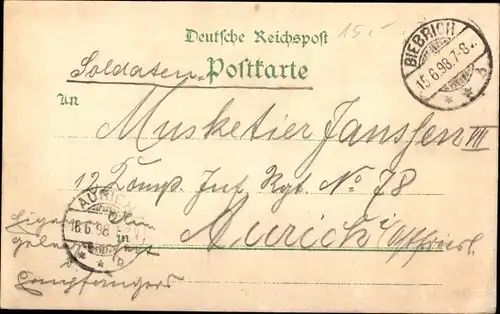 15.-
Deutsche Reichspost
Soldaten Postkarte
BIEBRICH
15.6.98.7-8
An
Musketier Janssen VIII
12 Komp. Inf. Rgt. No 78
AURICH
16.6.98
in Aurich i/Ostfriesl.
Eigene
Empfängers